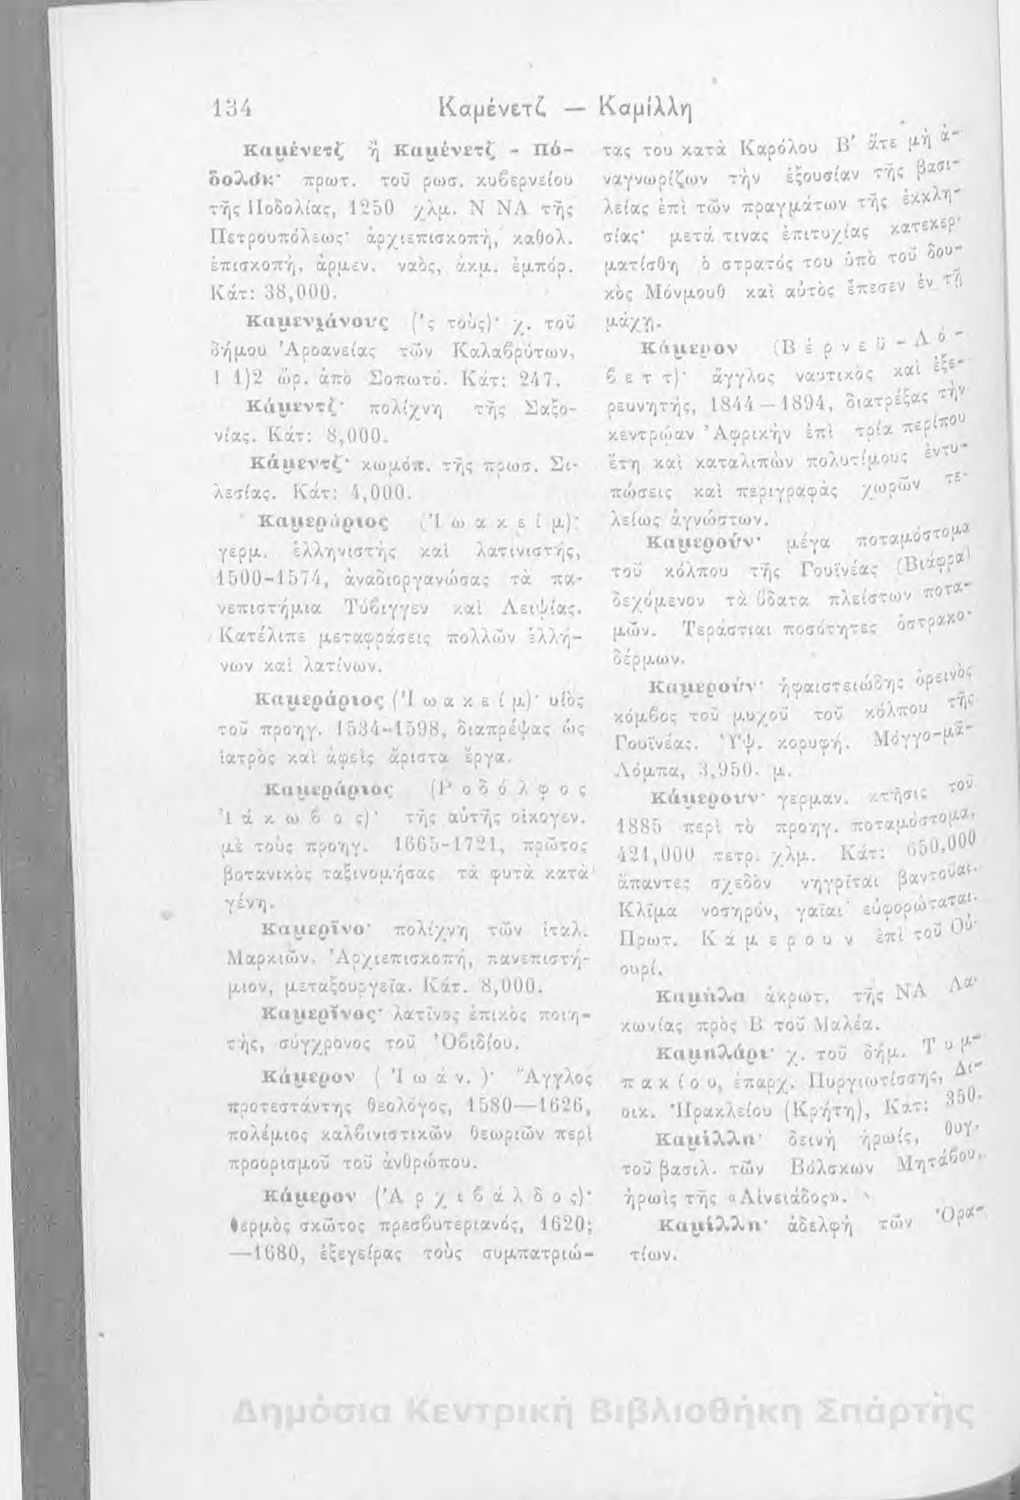 134 Καμένετζ — Καμίλλη
Καμένετζ ἢ Καμένετζ - Πό-
δολσκ· πρωτ. τοῦ ρωσ. κυβερνείου
τῆς Ποδολίας, 1250 χλμ. Ν ΝΑ τῆς
Πετρουπόλεως· ἀρχιεπισκοπή, καθολ.
ἐπισκοπή, ἀρμεν. ναός, ἀκμ. ἐμπόρ.
Κάτ: 38,000.
Καμενιάνους (’ς τούς)· χ. τοῦ
δήμου Ἀροανείας τῶν Καλαβρύτων,
1 1)2 ὥρ. ἀπὸ Σοπωτό. Κάτ: 247.
Κάμεντζ· πολίχνη τῆς Σαξο-
νίας. Κάτ: 8,000.
Κάμεντζ· κωμόπ. τῆς πρωσ. Σι-
λεσίας. Κάτ: 4,000.
Καμεράριος (Ἰωακείμ)·
γερμ. ἑλληνιστὴς καὶ λατινιστής,
1500-1574, ἀναδιοργανώσας τὰ πα-
νεπιστήμια Τύβιγγεν καὶ Λειψίας.
Κατέλιπε μεταφράσεις πολλῶν ἑλλή-
νων καὶ λατίνων.
Καμεράριος (Ἰωακείμ)· υἱὸς
τοῦ προηγ. 1534-1598, διαπρέψας ὡς
ἰατρὸς καὶ ἀφεὶς ἄριστα ἔργα.
Καμεράριος (Ροδόλφος
Ἰάκωβος)· τῆς αὐτῆς οἰκογεν.
μὲ τοὺς προηγ. 1665-1721, πρῶτος
βοτανικὸς ταξινομήσας τὰ φυτὰ κατὰ
γένη.
Καμερῖνο· πολίχνη τῶν ἰταλ.
Μαρκιῶν. Ἀρχιεπισκοπή, πανεπιστή-
μιον, μεταξουργεῖα. Κάτ. 8,000.
Καμερῖνος· λατῖνος ἐπικὸς ποιη-
τής, σύγχρονος τοῦ Ὀβιδίου.
Κάμερον (Ἰωάν.)· Ἄγγλος
προτεστάντης θεολόγος, 1580—1626,
πολέμιος καλβινιστικῶν θεωριῶν περὶ
προορισμοῦ τοῦ ἀνθρώπου.
Κάμερον (Ἀρχιβάλδος)·
θερμὸς σκῶτος πρεσβυτεριανός, 1620;
—1680, ἐξεγείρας τοὺς συμπατριώ-
τας του κατὰ Καρόλου Β′ ἅτε μὴ ἀ-
ναγνωρίζων τὴν ἐξουσίαν τῆς βασι-
λείας ἐπὶ τῶν πραγμάτων τῆς ἐκκλη-
σίας· μετά τινας ἐπιτυχίας κατεκερ-
ματίσθη ὁ στρατός του ὑπὸ τοῦ δου-
κὸς Μόνμουθ καὶ αὐτὸς ἔπεσεν ἐν τῇ
μάχῃ.
Κάμερον (Βέρνεϋ-Λό-
βεττ)· ἄγγλος ναυτικὸς καὶ ἐξε-
ρευνητής, 1844—1894, διατρέξας τὴν
κεντρώαν Ἀφρικὴν ἐπὶ τρία περίπου
ἔτη καὶ καταλιπὼν πολυτίμους ἐντυ-
πώσεις καὶ περιγραφὰς χωρῶν τε-
λείως ἀγνώστων.
Καμερούν· μέγα ποταμόστομα
τοῦ κόλπου τῆς Γουϊνέας (Βιάφρα)
δεχόμενον τὰ ὕδατα πλείστων ποτα-
μῶν. Τεράστιαι ποσότητες ὀστρακο-
δέρμων.
Καμερούν· ἡφαιστειώδης ὀρεινὸς
κόμβος τοῦ μυχοῦ τοῦ κόλπου τῆς
Γουϊνέας. Ὑψ. κορυφή, Μόγγο-μᾶ-
Λόμπα, 3,950. μ.
Κάμερουν· γερμαν. κτῆσις τοῦ
1885 περὶ τὸ προηγ. ποταμόστομα,
421,000 τετρ. χλμ. Κάτ: 650,000
ἅπαντες σχεδὸν νηγρῖται βαντοῦαι.
Κλῖμα νοσηρόν, γαῖαι εὐφορώταται.
Πρωτ. Κάμερουν ἐπὶ τοῦ Οὐ-
ουρί.
Καμήλα ἀκρωτ. τῆς ΝΑ Λα-
κωνίας πρὸς Β τοῦ Μαλέα.
Καμηλάρι· χ. τοῦ δήμ. Τυμ-
πακίου, ἐπαρχ. Πυργιωτίσσης, Δι-
οικ. Ἡρακλείου (Κρήτη), Κάτ: 350.
Καμίλλη· δεινὴ ἡρωίς, θυγ.
τοῦ βασιλ. τῶν Βόλσκων Μητάβου,
ἡρωὶς τῆς «Αἰνειάδος».
Καμίλλη· ἀδελφὴ τῶν Ὁρα-
τίων.
Δημόσια Κεντρική Βιβλιοθήκη Σπάρτης